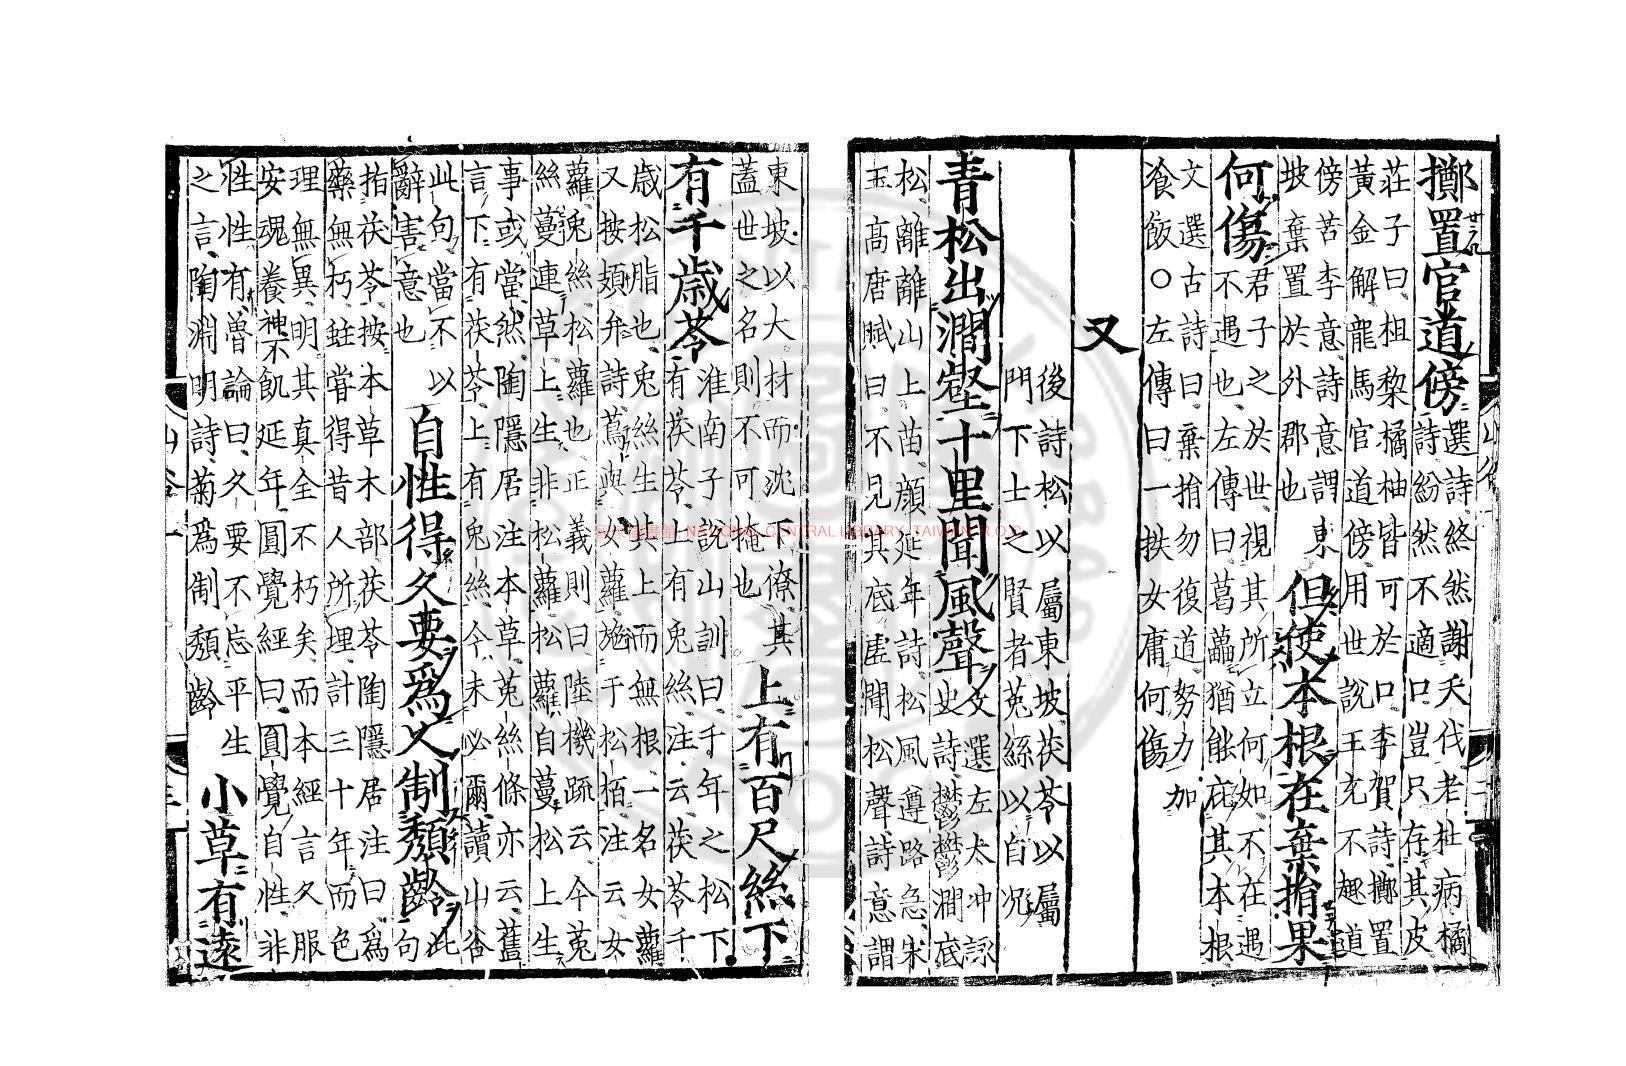 擲置官道傍選詩終然謝夭伐老杜病橘
詩紛然不適口豈只存其皮
莊子曰柤黎橘柚皆可於口李賀詩擲置
黃金解龍馬官道傍用世說王充不趣道
傍苦李意詩意謂東
坡棄置於外郡也
但使本根在棄捐果
何傷君子之於世視其所立何如不在遇
不遇也左傳曰葛藟猶能庇其本根
文選古詩曰棄捐勿復道努力加
飡飯○左傳曰一抶女庸何傷
又
後詩松以屬東坡茯苓以屬
門下士之賢者菟絲以自況
青松出澗壑十里聞風聲文選左太冲詠
史詩鬱鬱澗底
松離離山上苗顏延年詩松風遵路急宋
玉高唐賦曰不見其底虛聞松聲詩意謂
東坡以大材而沈下僚其
蓋世之名則不可掩也
上有百尺絲下
有千歲苓淮南子說山訓曰千年之松下
有茯苓上有兎絲注云茯苓千
歲松脂也兎絲生其上而無根一名女蘿
又按頍弁詩蔦與女蘿施于松栢注云女
蘿兎絲松蘿也正義則曰陸機疏云今菟
絲蔓連草上生非松蘿松蘿自蔓松上生
事或當然陶隱居注本草菟絲條亦云舊
言下有茯苓上有兎絲今未必爾讀山谷
此句當不以
辭害意也
自性得久要爲人制頽齡此句
指茯苓按本草木部茯苓陶隱居注曰爲
藥無朽蛀嘗得昔人所埋計三十年而色
理無異明其真全不朽矣而本經言久服
安魂養神不飢延年圓覺經曰圓覺自性非
性性有魯論曰久要不忘平生
之言陶淵明詩菊爲制頽齡
小草有遠
國家圖書館 NATIONAL CENTRAL LIBRARY, TAIWAN R.O.C.